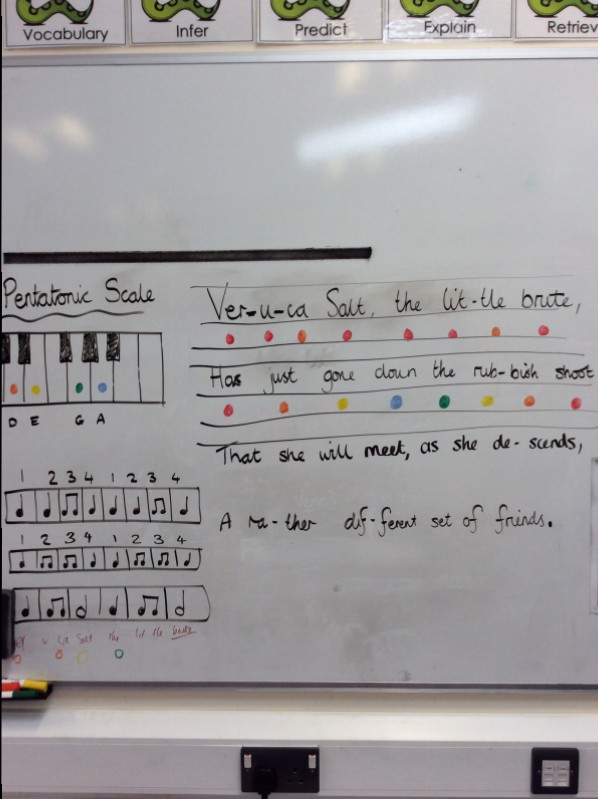 Vocabulary
Infer
Predict
Explain
Retriev
Pentatonic Scale
D E G A
Ver-u-ca Salt, the lit-tle brute,
Has just gone down the rub-bish shoot
That she will meet, as she de-scends,
A ra-ther dif-ferent set of friends.
1 2 3 4 1 2 3 4
1 2 3 4 1 2 3 4
u ca Salt the lit tle brute